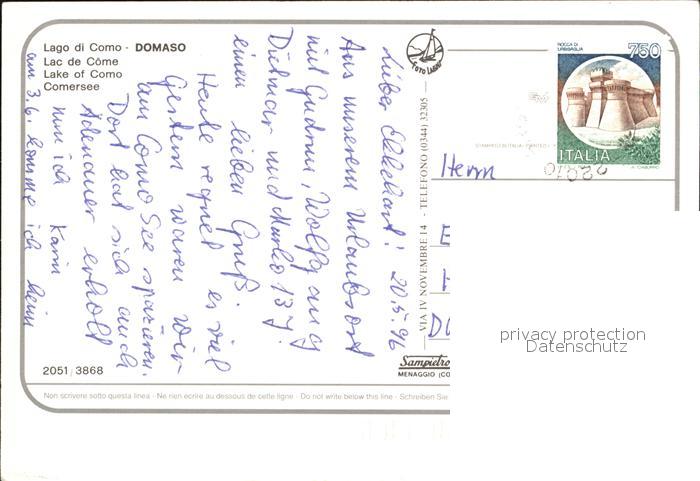 Lago di Como - DOMASO
Lac de Côme
Lake of Como
Comersee
Lieber Ekkehart! 20.5.96
Aus unserem Urlaubsort
mit Gudrun, Wolfgang
Dietmar und Marko 13 J.
einen lieben Gruß.
Heute regnet es viel
Gestern waren wir
am Como See spazieren.
Dort hat sich auch
Adenauer erholt
nun ich
Karin
am 3.6. komme ich heim
FOTO LARIO
VIA IV NOVEMBRE 14 - TELEFONO (0344) 32305
Sampietro
MENAGGIO (CO
2051 / 3868
Non scrivere sotto questa linea - Ne rien ecrire au dessous de cette ligne - Do not write below this line - Schreiben Sie
ROCCA DI
URBISAGLIA
750
ITALIA
22010
Herrn
E
H
DO
privacy protection
Datenschutz